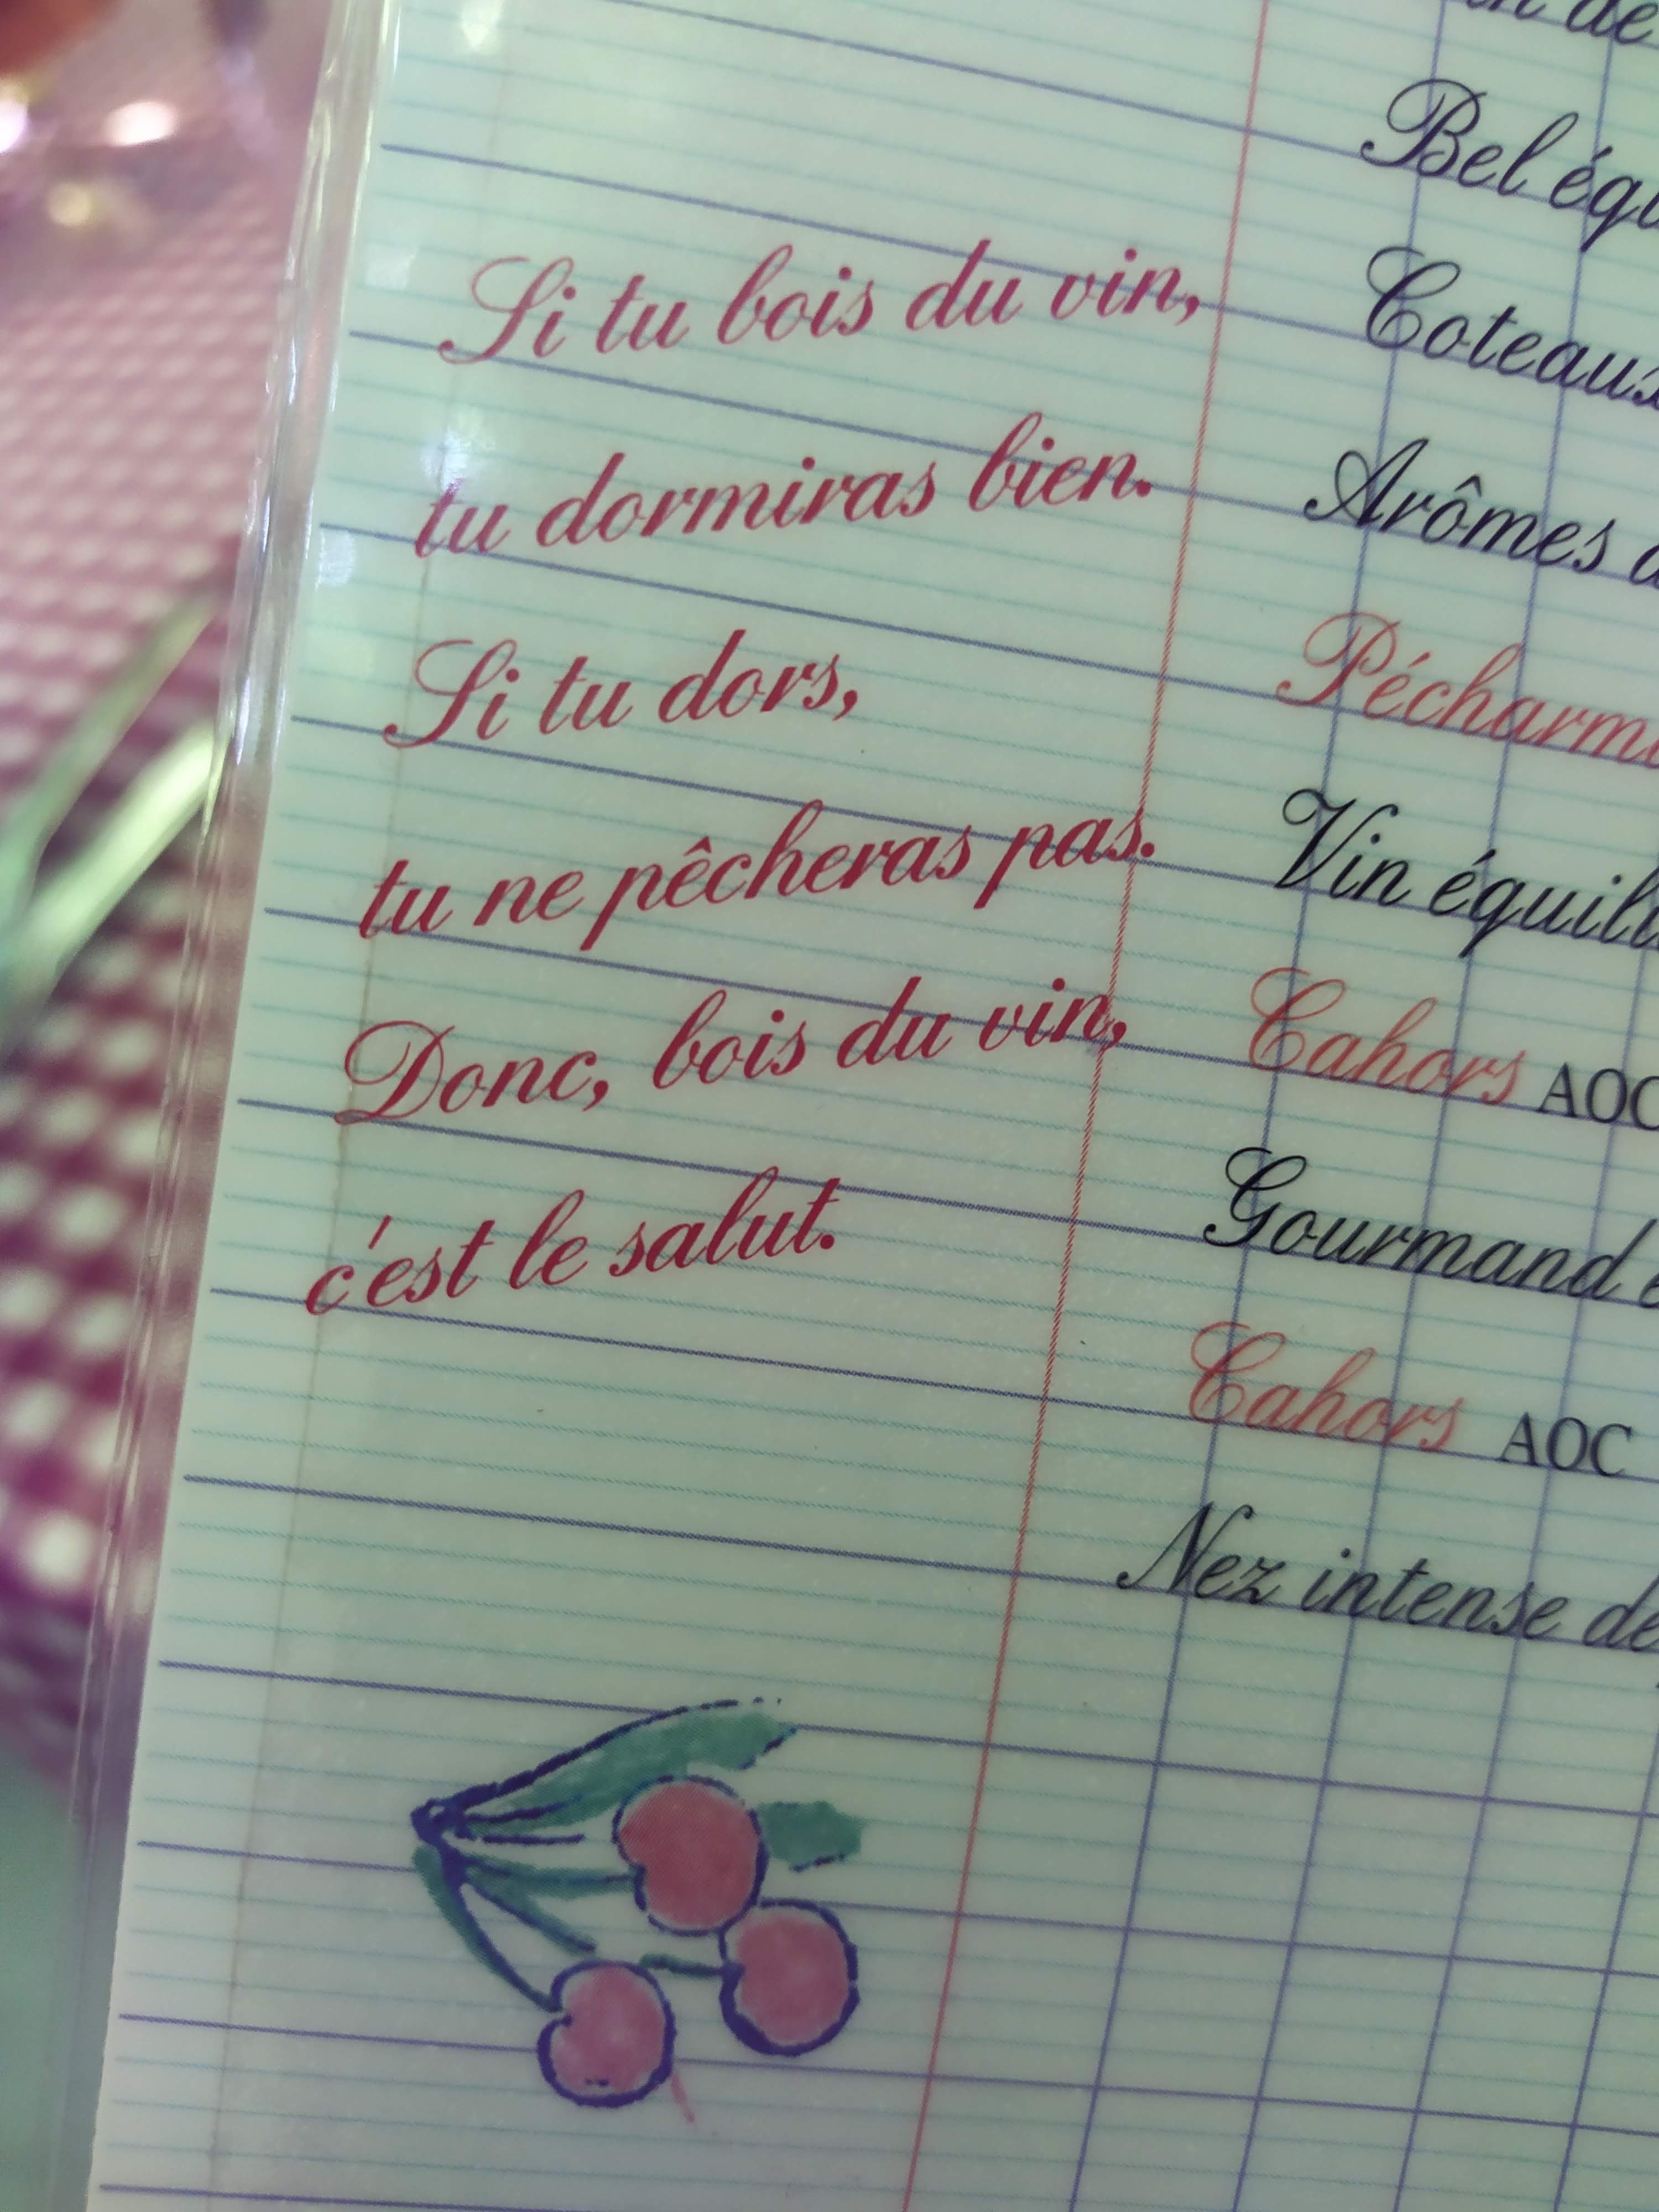 Si tu bois du vin,
tu dormiras bien.
Si tu dors,
tu ne pêcheras pas.
Donc, bois du vin,
c'est le salut.
de
Bel
Coteaux
Arômes
Vin
Cahors AOC
Gourmand
Cahors AOC
Nez intense de